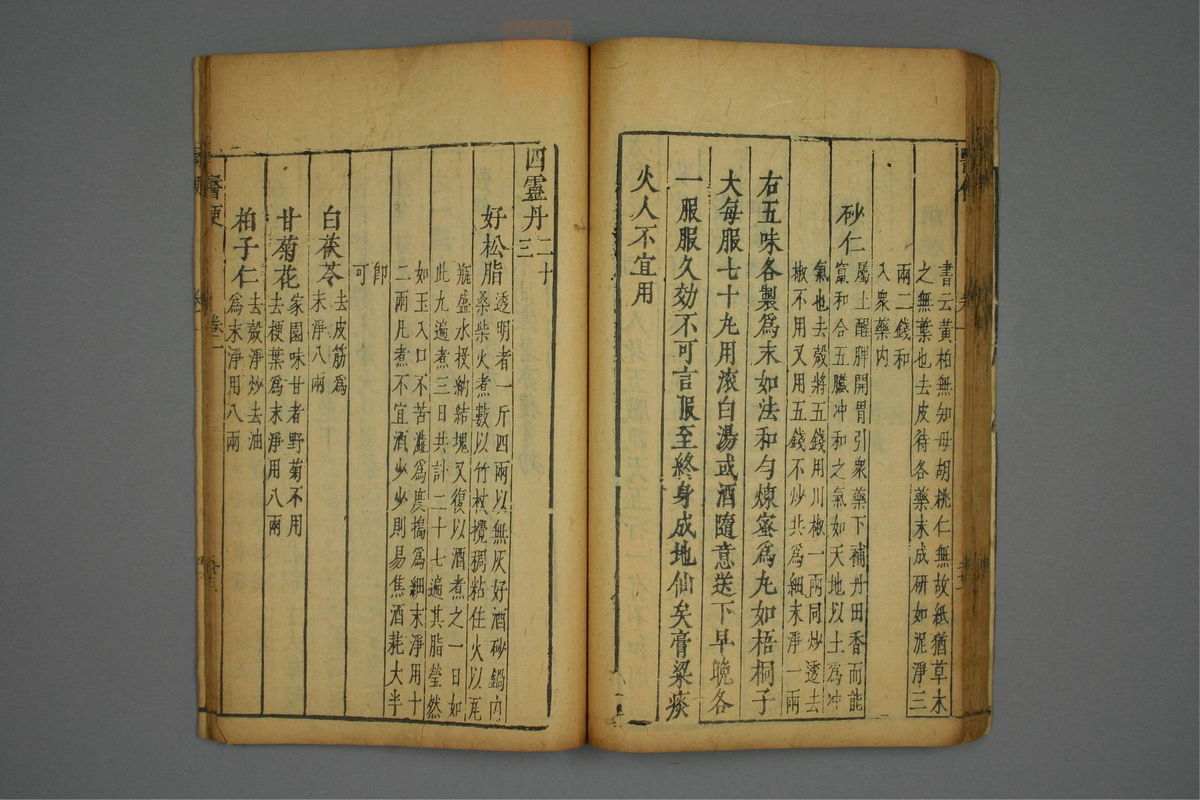 書云黃柏無知母胡桃仁無故紙猶草木
之無葉也去皮待各藥末成研如泥淨三
兩二錢和
入衆藥內
砂仁
屬土醒脾開胃引衆藥下補丹田香而能
竄和合五臟冲和之氣如天地以土爲冲
氣也去殼將五錢用川椒一兩同炒透去
椒不用又用五錢不炒共爲細末淨一兩
右五味各製爲末如法和勻煉蜜爲丸如梧桐子
大每服七十丸用滚白湯或酒隨意送下早晚各
一服服久効不可言服至終身成地仙矣膏梁痰
火人不宜用
四靈丹二十三
好松脂
透明者一斤四兩以無灰好酒砂鍋內
桑柴火煮數以竹杖攪稠粘住火以尾
瓶盛水投納結塊又復以酒煮之一日如
此九遍煮三日共計二十七遍其脂瑩然
如玉入口不苦澁爲度搗爲細末淨用十
二兩凡煮不宜酒少少則易焦酒耗大半
卽
可
白茯苓
去皮筋爲
末淨八兩
甘菊花
家園味甘者野菊不用
去梗葉爲末淨用八兩
柏子仁
去殼淨炒去油
爲末淨用八兩
醫便
卷二